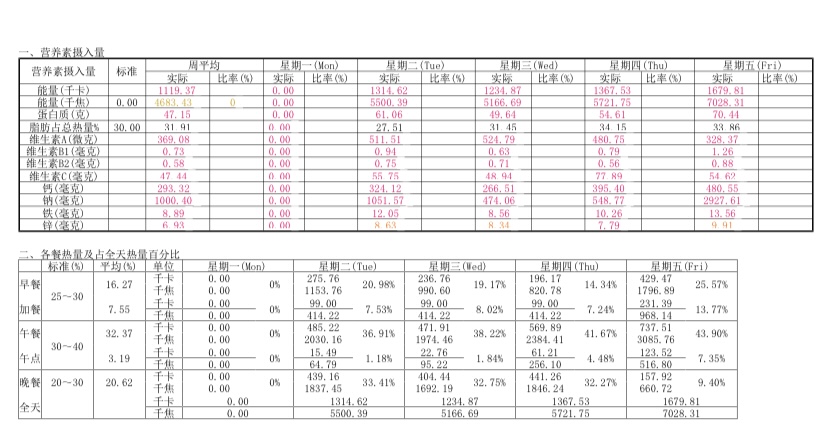 一、营养素摄入量
营养素摄入量 标准 周平均 星期一(Mon) 星期二(Tue) 星期三(Wed) 星期四(Thu) 星期五(Fri)
实际 比率(%) 实际 比率(%) 实际 比率(%) 实际 比率(%) 实际 比率(%) 实际 比率(%)
能量(千卡) 1119.37 0.00 1314.62 1234.87 1367.53 1679.81
能量(千焦) 0.00 4683.43 0 0.00 5500.39 5166.69 5721.75 7028.31
蛋白质(克) 47.15 0.00 61.06 49.64 54.61 70.44
脂肪占总热量% 30.00 31.91 0.00 27.51 31.45 34.15 33.86
维生素A(微克) 369.08 0.00 511.51 524.79 480.75 328.37
维生素B1(毫克) 0.73 0.00 0.94 0.63 0.79 1.26
维生素B2(毫克) 0.58 0.00 0.75 0.71 0.56 0.88
维生素C(毫克) 47.44 0.00 55.75 48.94 77.89 54.62
钙(毫克) 293.32 0.00 324.12 266.51 395.40 480.55
钠(毫克) 1000.40 0.00 1051.57 474.06 548.77 2927.61
铁(毫克) 8.89 0.00 12.05 8.56 10.26 13.56
锌(毫克) 6.93 0.00 8.63 8.34 7.79 9.91
二、各餐热量及占全天热量百分比
标准(%) 平均(%) 单位 星期一(Mon) 星期二(Tue) 星期三(Wed) 星期四(Thu) 星期五(Fri)
早餐 25～30 16.27 千卡 0.00 0% 275.76 20.98% 236.76 19.17% 196.17 14.34% 429.47 25.57%
千焦 0.00 1153.76 990.60 820.78 1796.89
加餐 7.55 千卡 0.00 0% 99.00 7.53% 99.00 8.02% 99.00 7.24% 231.39 13.77%
千焦 0.00 414.22 414.22 414.22 968.14
午餐 30～40 32.37 千卡 0.00 0% 485.22 36.91% 471.91 38.22% 569.89 41.67% 737.51 43.90%
千焦 0.00 2030.16 1974.46 2384.41 3085.76
午点 3.19 千卡 0.00 0% 15.49 1.18% 22.76 1.84% 61.21 4.48% 123.52 7.35%
千焦 0.00 64.79 95.22 256.10 516.80
晚餐 20～30 20.62 千卡 0.00 0% 439.16 33.41% 404.44 32.75% 441.26 32.27% 157.92 9.40%
千焦 0.00 1837.45 1692.19 1846.24 660.72
全天 千卡 0.00 1314.62 1234.87 1367.53 1679.81
千焦 0.00 5500.39 5166.69 5721.75 7028.31